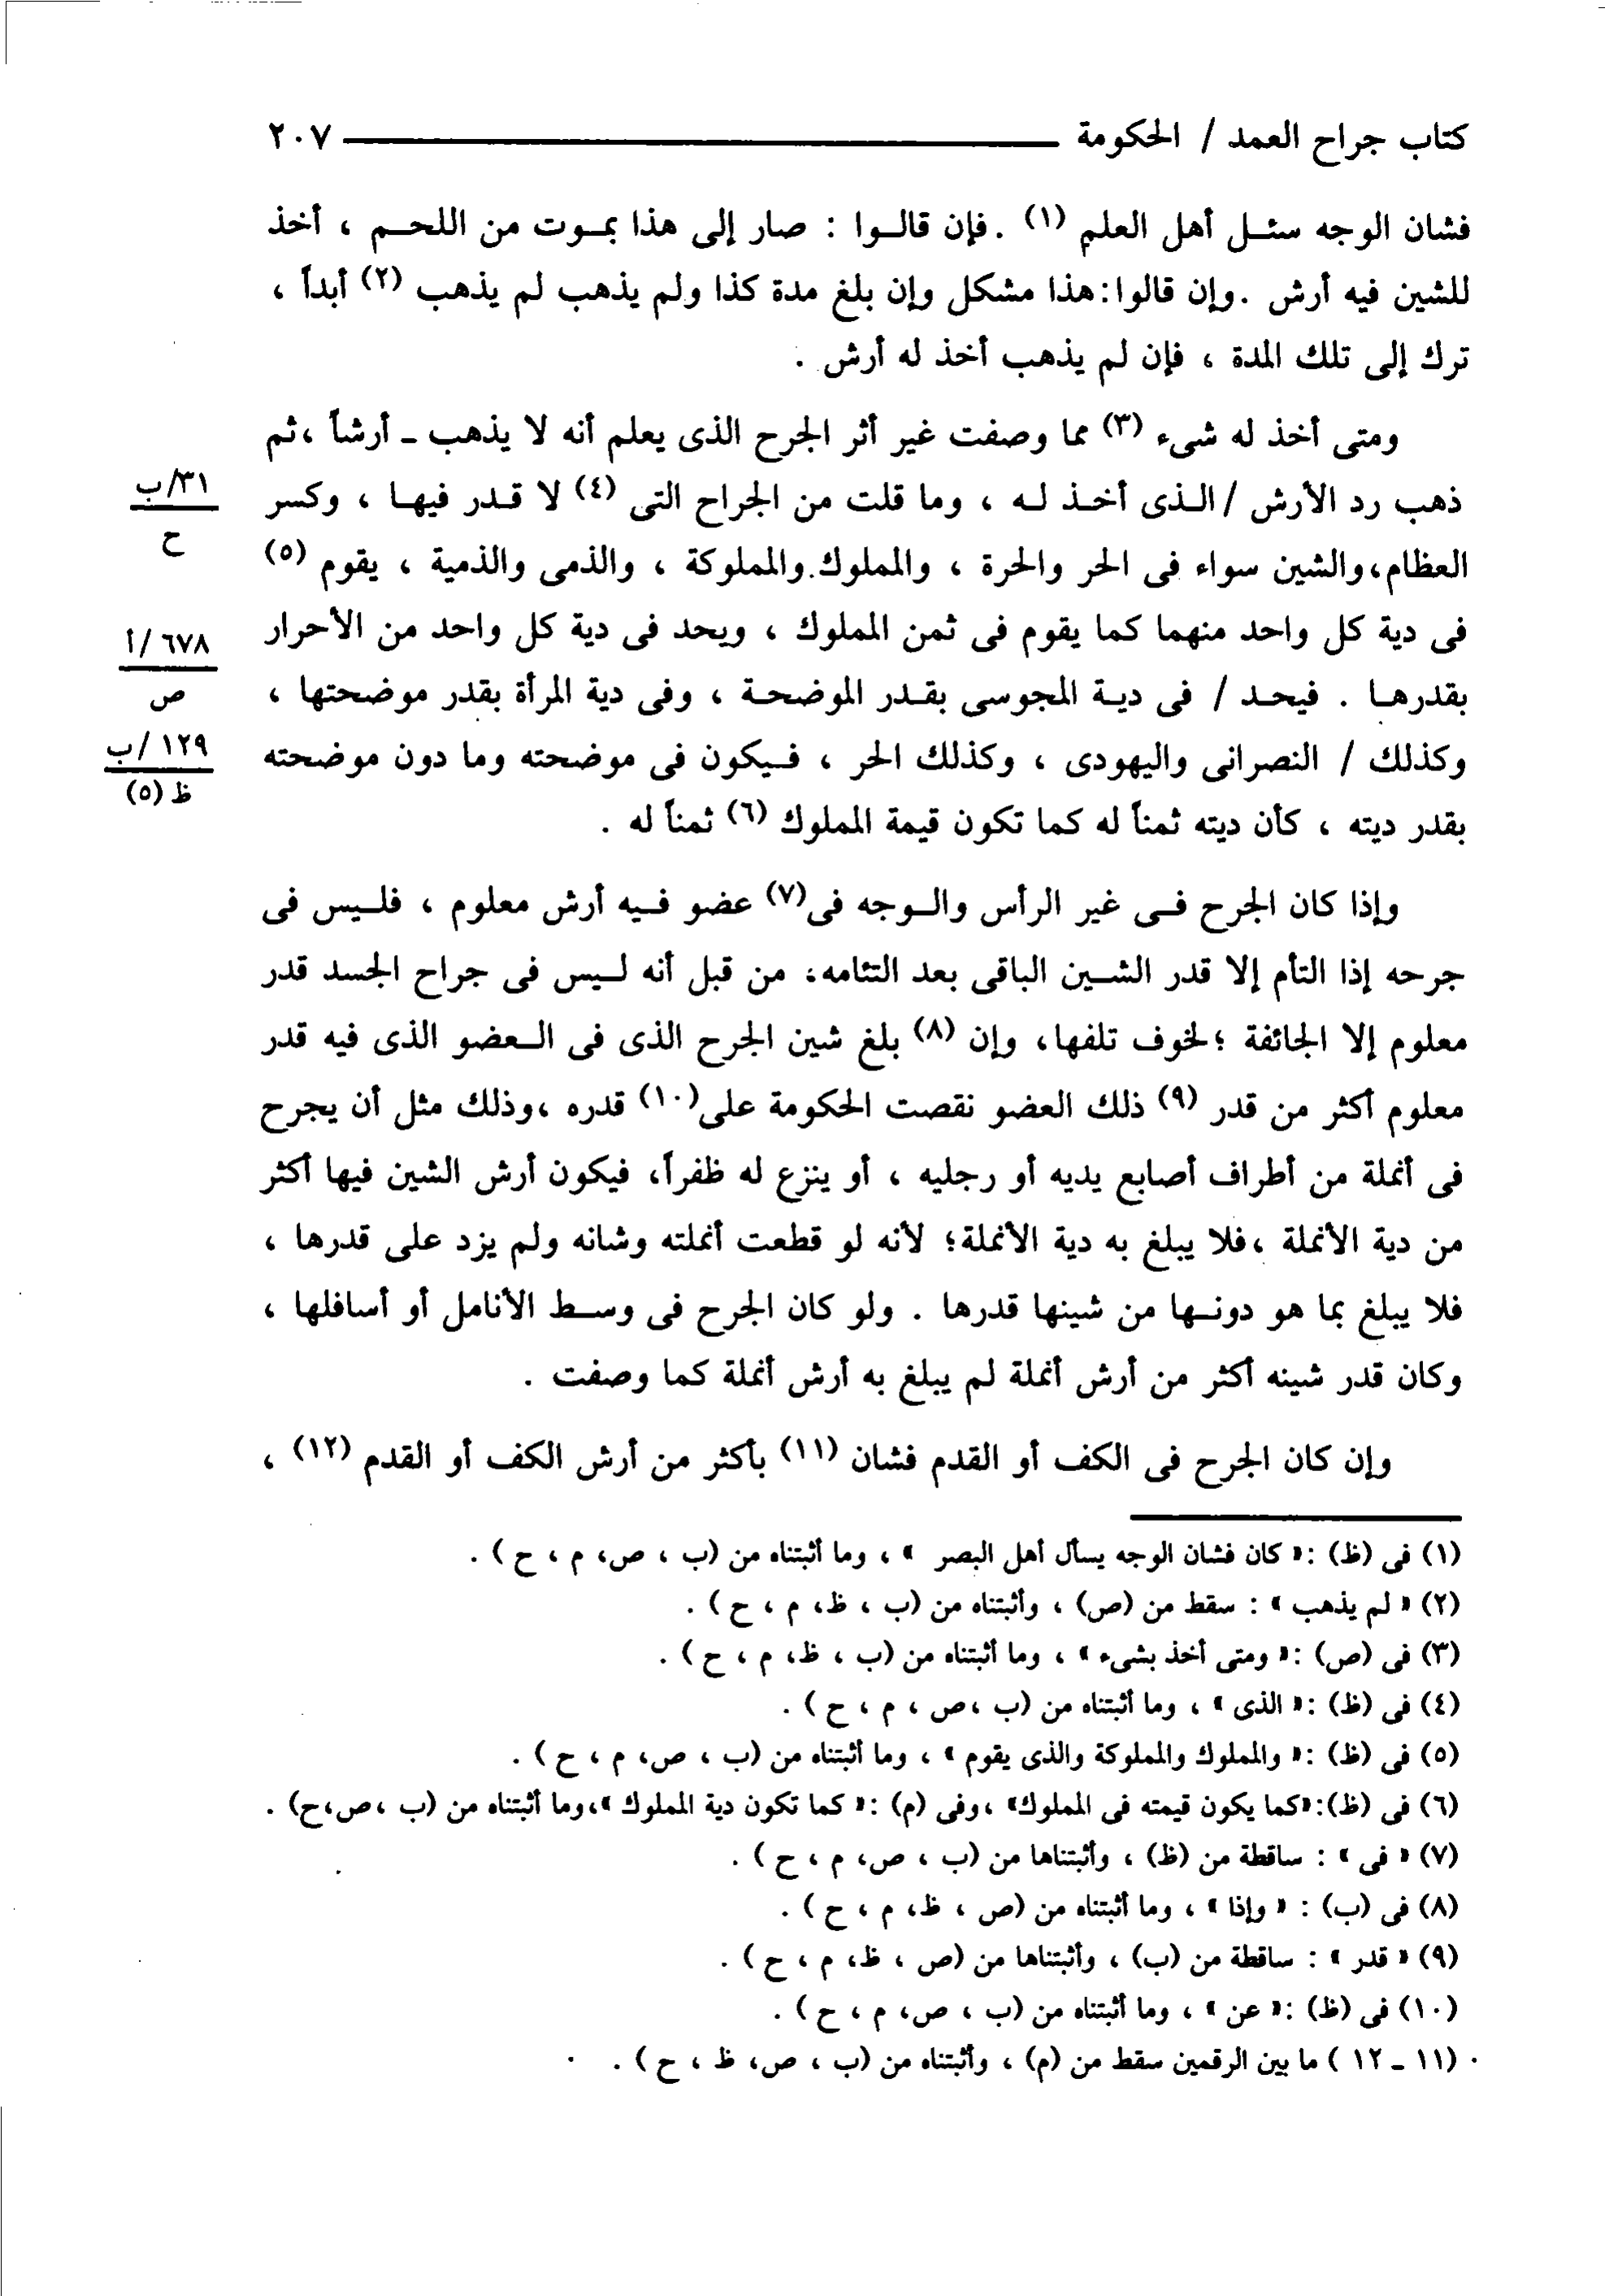 كتاب جراح العمد / الحكومة ــــــــــــــــ ٢٠٧
فشان الوجه سئل أهل العلم (١) . فإن قالوا : صار إلى هذا بموت من اللحم ، أخذ
للشين فيه أرش . وإن قالوا : هذا مشكل وإن بلغ مدة كذا ولم يذهب لم يذهب (٢) أبداً ،
ترك إلى تلك المدة ، فإن لم يذهب أخذ له أرش .
ومتى أخذ له شىء (٣) مما وصفت غير أثر الجرح الذى يعلم أنه لا يذهب ـ أرشاً ، ثم
ذهب رد الأرش / الذى أخذ له ، وما قلت من الجراح التى (٤) لا قدر فيها ، وكسر
٣١/ب
ح
العظام ، والشين سواء فى الحر والحرة ، والمملوك والمملوكة ، والذمى والذمية ، يقوم (٥)
فى دية كل واحد منهما كما يقوم فى ثمن المملوك ، ويحد فى دية كل واحد من الأحرار
٦٧٨/أ
ص
بقدرها . فيحد / فى دية المجوسى بقدر الموضحة ، وفى دية المرأة بقدر موضحتها ،
وكذلك / النصرانى واليهودى ، وكذلك الحر ، فيكون فى موضحته وما دون موضحته
١٢٩/ب
ظ (٥)
بقدر ديته ، كأن ديته ثمناً له كما تكون قيمة المملوك (٦) ثمناً له .
وإذا كان الجرح فى غير الرأس والوجه فى (٧) عضو فيه أرش معلوم ، فليس فى
جرحه إذا التأم إلا قدر الشين الباقى بعد التئامه ، من قبل أنه ليس فى جراح الجسد قدر
معلوم إلا الجائفة ؛ لخوف تلفها ، وإن (٨) بلغ شين الجرح الذى فى العضو الذى فيه قدر
معلوم أكثر من قدر (٩) ذلك العضو نقصت الحكومة على (١٠) قدره ، وذلك مثل أن يجرح
فى أنملة من أطراف أصابع يديه أو رجليه ، أو ينزع له ظفراً ، فيكون أرش الشين فيها أكثر
من دية الأنملة ، فلا يبلغ به دية الأنملة ؛ لأنه لو قطعت أنملته وشانه ولم يزد على قدرها ،
فلا يبلغ بما هو دونها من شينها قدرها . ولو كان الجرح فى وسط الأنامل أو أسافلها ،
وكان قدر شينه أكثر من أرش أنملة لم يبلغ به أرش أنملة كما وصفت .
وإن كان الجرح فى الكف أو القدم فشان (١١) بأكثر من أرش الكف أو القدم (١٢) ،
(١) فى (ظ) : « كان فشان الوجه يسأل أهل البصر » ، وما أثبتناه من (ب ، ص ، م ، ح ) .
(٢) « لم يذهب » : سقط من (ص) ، وأثبتناه من (ب ، ظ ، م ، ح ) .
(٣) فى (ص) : « ومتى أخذ بشىء » ، وما أثبتناه من (ب ، ظ ، م ، ح ) .
(٤) فى (ظ) : « الذى » ، وما أثبتناه من (ب ، ص ، م ، ح ) .
(٥) فى (ظ) : « والمملوك والمملوكة والذى يقوم » ، وما أثبتناه من (ب ، ص ، م ، ح ) .
(٦) فى (ظ) : «كما يكون قيمته فى المملوك» ، وفى (م) : « كما تكون دية المملوك » ، وما أثبتناه من (ب ، ص ، ح) .
(٧) « فى » : ساقطة من (ظ) ، وأثبتناها من (ب ، ص ، م ، ح ) .
(٨) فى (ب) : « وإذا » ، وما أثبتناه من (ص ، ظ ، م ، ح ) .
(٩) « قدر » : ساقطة من (ب) ، وأثبتناها من (ص ، ظ ، م ، ح ) .
(١٠) فى (ظ) : « عن » ، وما أثبتناه من (ب ، ص ، م ، ح ) .
(١١ ـ ١٢ ) ما بين الرقمين سقط من (م) ، وأثبتناه من (ب ، ص ، ظ ، ح ) .